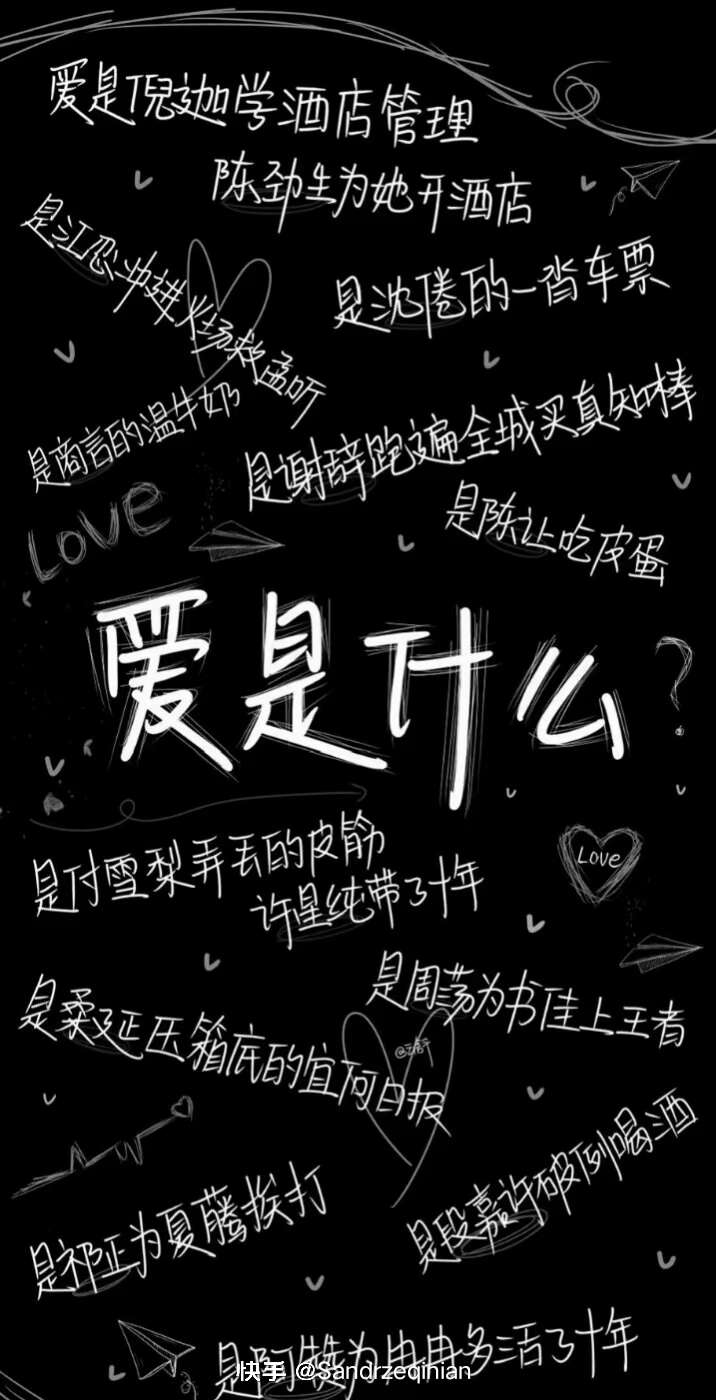 爱是倪迦学酒店管理
陈劲生为她开酒店
是江忍冲进火场救孟听
是沈倦的一沓车票
是商言的温牛奶
是谢辞跑遍全城买真知棒
Love
是陈让吃皮蛋
爱是什么?
是付雪梨弄丢的皮筋
许星纯带了十年
Love
是周荡为书佳上王者
是柔延压箱底的宜河日报
是段嘉许破例喝酒
是祁正为夏藤挨打
是阿赞为冉冉多活了十年
快手 @Sandrzeqinian